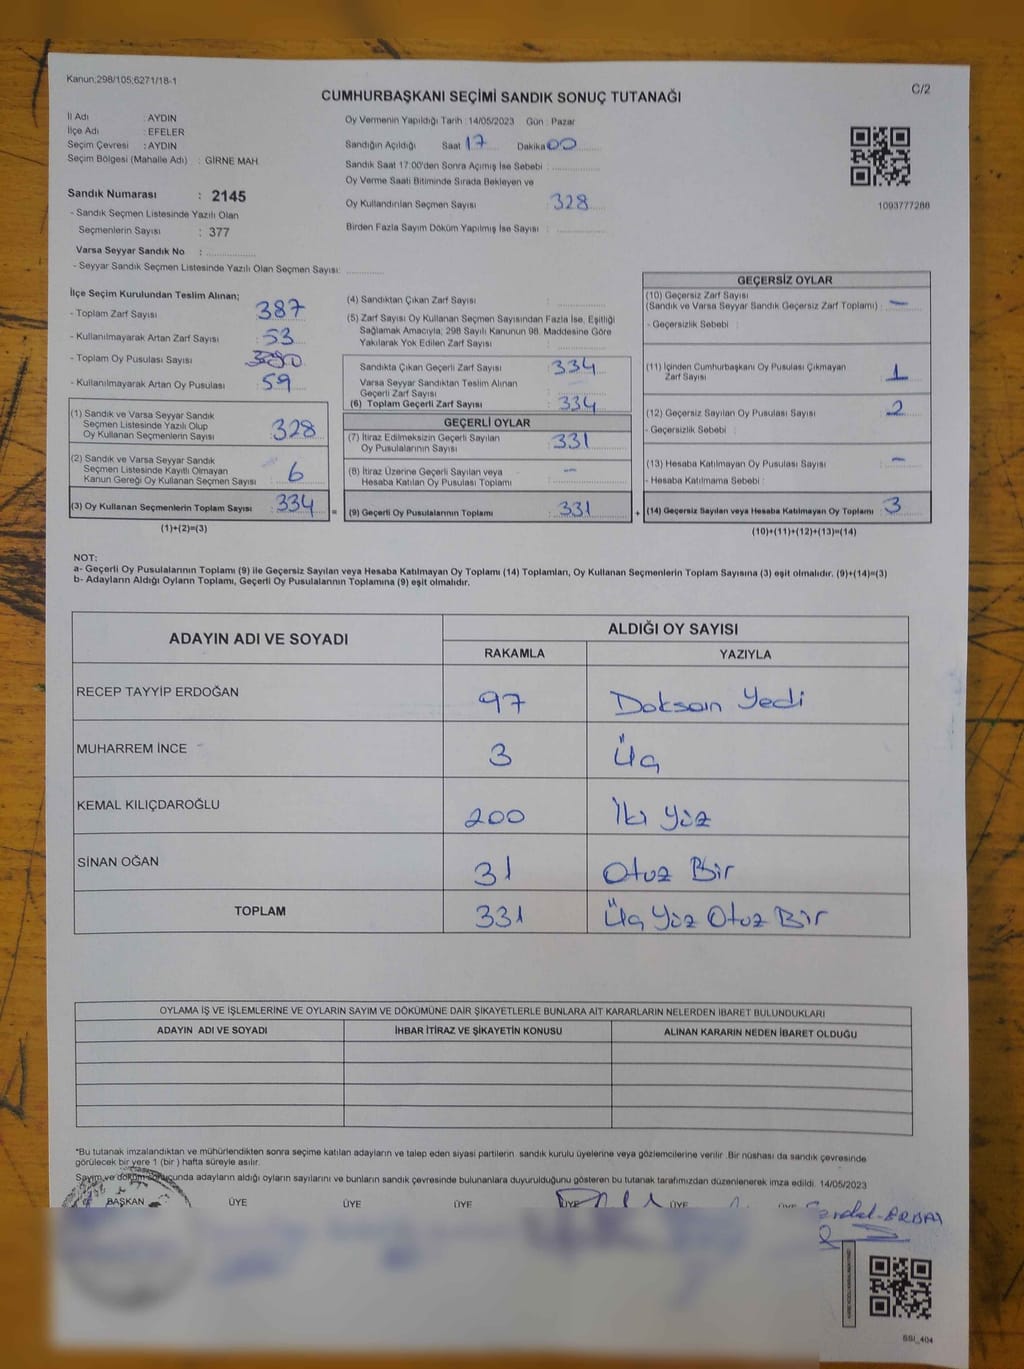 Kanun:298/105;6271/18-1
C/2
CUMHURBAŞKANI SEÇİMİ SANDIK SONUÇ TUTANAĞI
İl Adı : AYDIN
İlçe Adı : EFELER
Seçim Çevresi : AYDIN
Seçim Bölgesi (Mahalle Adı) : GİRNE MAH.
Sandık Numarası : 2145
- Sandık Seçmen Listesinde Yazılı Olan
Seçmenlerin Sayısı : 377
Varsa Seyyar Sandık No :
- Seyyar Sandık Seçmen Listesinde Yazılı Olan Seçmen Sayısı:
Oy Vermenin Yapıldığı Tarih :14/05/2023 Gün : Pazar
Sandığın Açıldığı Saat 17 Dakika 00
Sandık Saat 17:00'den Sonra Açımış İse Sebebi :
Oy Verme Saati Bitiminde Sırada Bekleyen ve
Oy Kullandırılan Seçmen Sayısı : 328
Birden Fazla Sayım Döküm Yapılmış İse Sayısı :
1093777288
İlçe Seçim Kurulundan Teslim Alınan;
- Toplam Zarf Sayısı : 387
- Kullanılmayarak Artan Zarf Sayısı : 53
- Toplam Oy Pusulası Sayısı :
- Kullanılmayarak Artan Oy Pusulası : 59
(1) Sandık ve Varsa Seyyar Sandık
Seçmen Listesinde Yazılı Olup
Oy Kullanan Seçmenlerin Sayısı : 328
(2) Sandık ve Varsa Seyyar Sandık
Seçmen Listesinde Kayıtlı Olmayan
Kanun Gereği Oy Kullanan Seçmen Sayısı : 6
(3) Oy Kullanan Seçmenlerin Toplam Sayısı : 334
(1)+(2)=(3)
(4) Sandıktan Çıkan Zarf Sayısı :
(5) Zarf Sayısı Oy Kullanan Seçmen Sayısından Fazla İse, Eşitliği
Sağlamak Amacıyla, 298 Sayılı Kanunun 98. Maddesine Göre
Yakılarak Yok Edilen Zarf Sayısı :
Sandıkta Çıkan Geçerli Zarf Sayısı : 334
Varsa Seyyar Sandıktan Teslim Alınan
Geçerli Zarf Sayısı :
(6) Toplam Geçerli Zarf Sayısı : 334
GEÇERLİ OYLAR
(7) İtiraz Edilmeksizin Geçerli Sayılan
Oy Pusulalarının Sayısı : 331
(8) İtiraz Üzerine Geçerli Sayılan veya
Hesaba Katılan Oy Pusulası Toplamı : -
= (9) Geçerli Oy Pusulalarının Toplamı : 331
GEÇERSİZ OYLAR
(10) Geçersiz Zarf Sayısı
(Sandık ve Varsa Seyyar Sandık Geçersiz Zarf Toplamı) : -
- Geçersizlik Sebebi :
(11) İçinden Cumhurbaşkanı Oy Pusulası Çıkmayan
Zarf Sayısı : 1
(12) Geçersiz Sayılan Oy Pusulası Sayısı : 2
- Geçersizlik Sebebi :
(13) Hesaba Katılmayan Oy Pusulası Sayısı : -
- Hesaba Katılmama Sebebi :
+ (14) Geçersiz Sayılan veya Hesaba Katılmayan Oy Toplamı : 3
(10)+(11)+(12)+(13)=(14)
NOT:
a- Geçerli Oy Pusulalarının Toplamı (9) ile Geçersiz Sayılan veya Hesaba Katılmayan Oy Toplamı (14) Toplamları, Oy Kullanan Seçmenlerin Toplam Sayısına (3) eşit olmalıdır. (9)+(14)=(3)
b- Adayların Aldığı Oyların Toplamı, Geçerli Oy Pusulalarının Toplamına (9) eşit olmalıdır.
ADAYIN ADI VE SOYADI
ALDIĞI OY SAYISI
RAKAMLA YAZIYLA
RECEP TAYYİP ERDOĞAN 97 Doksan Yedi
MUHARREM İNCE 3 Üç
KEMAL KILIÇDAROĞLU 200 İki Yüz
SİNAN OĞAN 31 Otuz Bir
TOPLAM 331 Üç Yüz Otuz Bir
OYLAMA İŞ VE İŞLEMLERİNE VE OYLARIN SAYIM VE DÖKÜMÜNE DAİR ŞİKAYETLERLE BUNLARA AİT KARARLARIN NELERDEN İBARET BULUNDUKLARI
ADAYIN ADI VE SOYADI İHBAR İTİRAZ VE ŞİKAYETİN KONUSU ALINAN KARARIN NEDEN İBARET OLDUĞU
*Bu tutanak imzalandıktan ve mühürlendikten sonra seçime katılan adayların ve talep eden siyasi partilerin sandık kurulu üyelerine veya gözlemcilerine verilir .Bir nüshası da sandık çevresinde
görülecek bir yere 1 (bir ) hafta süreyle asılır.
Sayım ve döküm sonucunda adayların aldığı oyların sayılarını ve bunların sandık çevresinde bulunanlara duyurulduğunu gösteren bu tutanak tarafımızdan düzenlenerek imza edildi. 14/05/2023
BAŞKAN ÜYE ÜYE ÜYE ÜYE ÜYE ÜYE
SSI_404